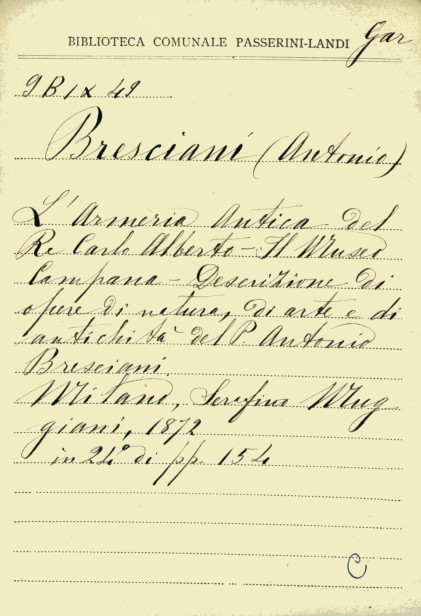 BIBLIOTECA COMUNALE PASSERINI-LANDI Gar
9 B IX 49
Bresciani (Antonio)
L'Armeria Antica del
Re Carlo Alberto - Il Museo
Campana - Descrizione di
opere di natura, di arte e di
antichità del P. Antonio
Bresciani.
Milano, Serafino Mug
giani, 1872
in 24° di pp. 154
C